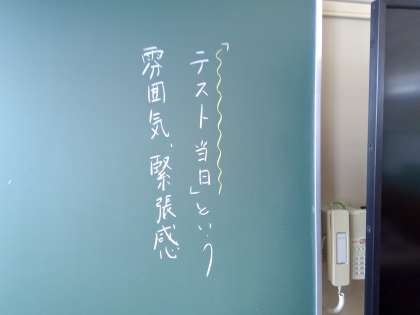 「テスト当日」という
雰囲気、緊張感